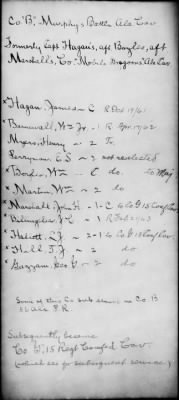 Co "B," Murphy's Battn Ala Cav
Formerly Capt Hagan's, aft Boyles, aft
Marshall's, Co. Mobile Dragoons Ala Cav
*Hagan, James - C R Dec 19/61
Wm Jr. - 1 R Apr 19/62
Myers, Henry ~ 2 Jr.
Perryman E.S ~ 2 not reelected
*Wm - C do. to Maj
*Martin, Wm ~ 2 do
*Marshall John H - 1-C to Co G 15 Conf Cav.
J F - 1 R Feb 2/63
*S.J. - 2-1 to Co G 15 Conf Cav.
*Hall, T.J. ~ 2 do
*Gazzam, Geo G ~ 2 do
Some of this Co sub served in Co B
Ala P.R.
Subsequently became
Co G, 15 Regt Confed Cav.
(which see for subsequent service)